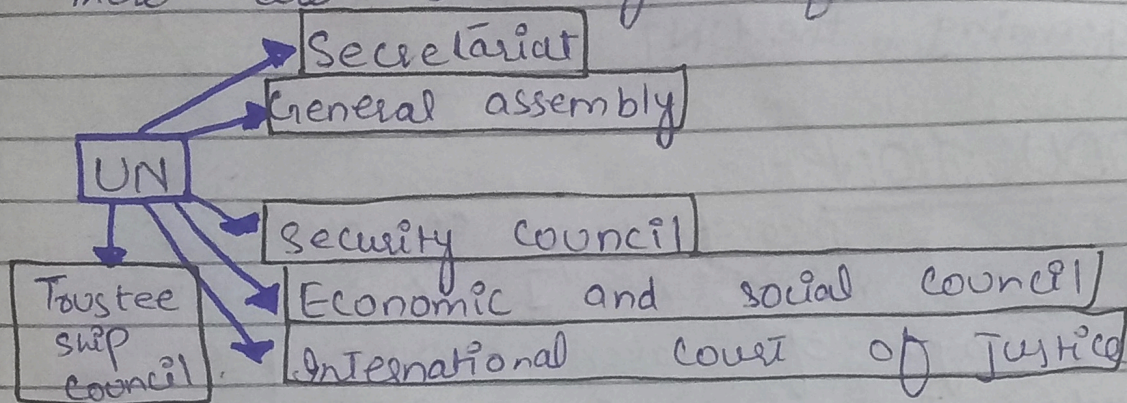 Secretariat
General assembly
UN
Security council
Economic and social council
International court of Justice
Trustee
ship
council.